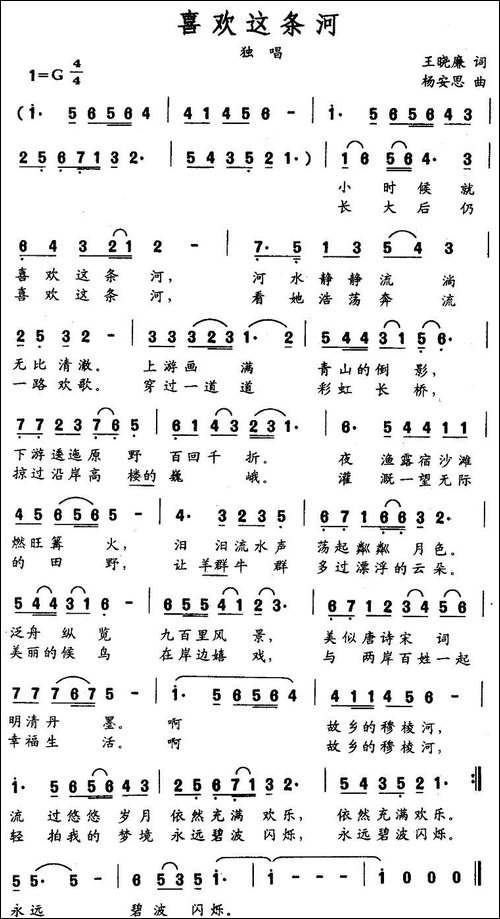 喜欢这条河
独唱
1=G 4/4
王晓廉 词
杨安思 曲
(1· 5 65654 | 4145 6 - | 1· 5 65643 |
2567132· | 5435 21·) | 16 564· 3 |
小时候就
长大后仍
6 4 3 21 2 - | 7· 5 1 3 5 4 3 |
喜欢这条河， 河水静静流淌
喜欢这条河， 看她浩荡奔流
2 5 3 2 - | 3 3 3 2 3 2 3 1· 2 | 5 4 4 3 5 1 5 6· |
无比清澈。 上游画 满 青山的倒影，
一路欢歌。 穿过一道道 彩虹长桥，
7 7 2 3 7 6 5 | 6 1 4 3 2 3 1· | 6· 5 4 4 1 1 |
下游逶迤原 野 百回千 折。 夜 渔露宿沙滩
掠过沿岸高 楼的 巍 峨。 灌 溉一望无际
4 5 6 5 6 5 - | 4· 3 2 3 5 | 6 7 1 6 6 3 2· |
燃旺篝 火， 汩 汩流水声 荡起粼粼 月色。
的 田 野， 让 羊群牛 群 多过漂浮的云朵。
5 4 4 3 1 6 - | 1 6 5 5 4 2 3· | 6 7 1 2 3 4 5 6 |
泛舟 纵 览 九百里风 景， 美似唐诗宋 词
美丽的候 鸟 在岸边嬉 戏， 与 两岸百姓一起
7 7 7 6 7 5 - | 1· 5 6 5 6 4 | 4 1 1 4 5 6 - |
明清丹 墨。 啊 故乡的穆棱河，
幸福生 活。 啊 故乡的穆棱河，
1· 5 6 5 6 4 3 | 2 5 6 7 1 3 2· | 5 4 3 5 2 1· :||
流 过悠悠 岁月 依然充满 欢乐， 依然充满欢乐。
轻 拍我的 梦境 永远碧波 闪烁， 永远碧波闪烁。
5 5· 5 - | 6 5 3 5 1· | 1 - - - | 1 0 0 0 ||
永远 碧波闪烁。